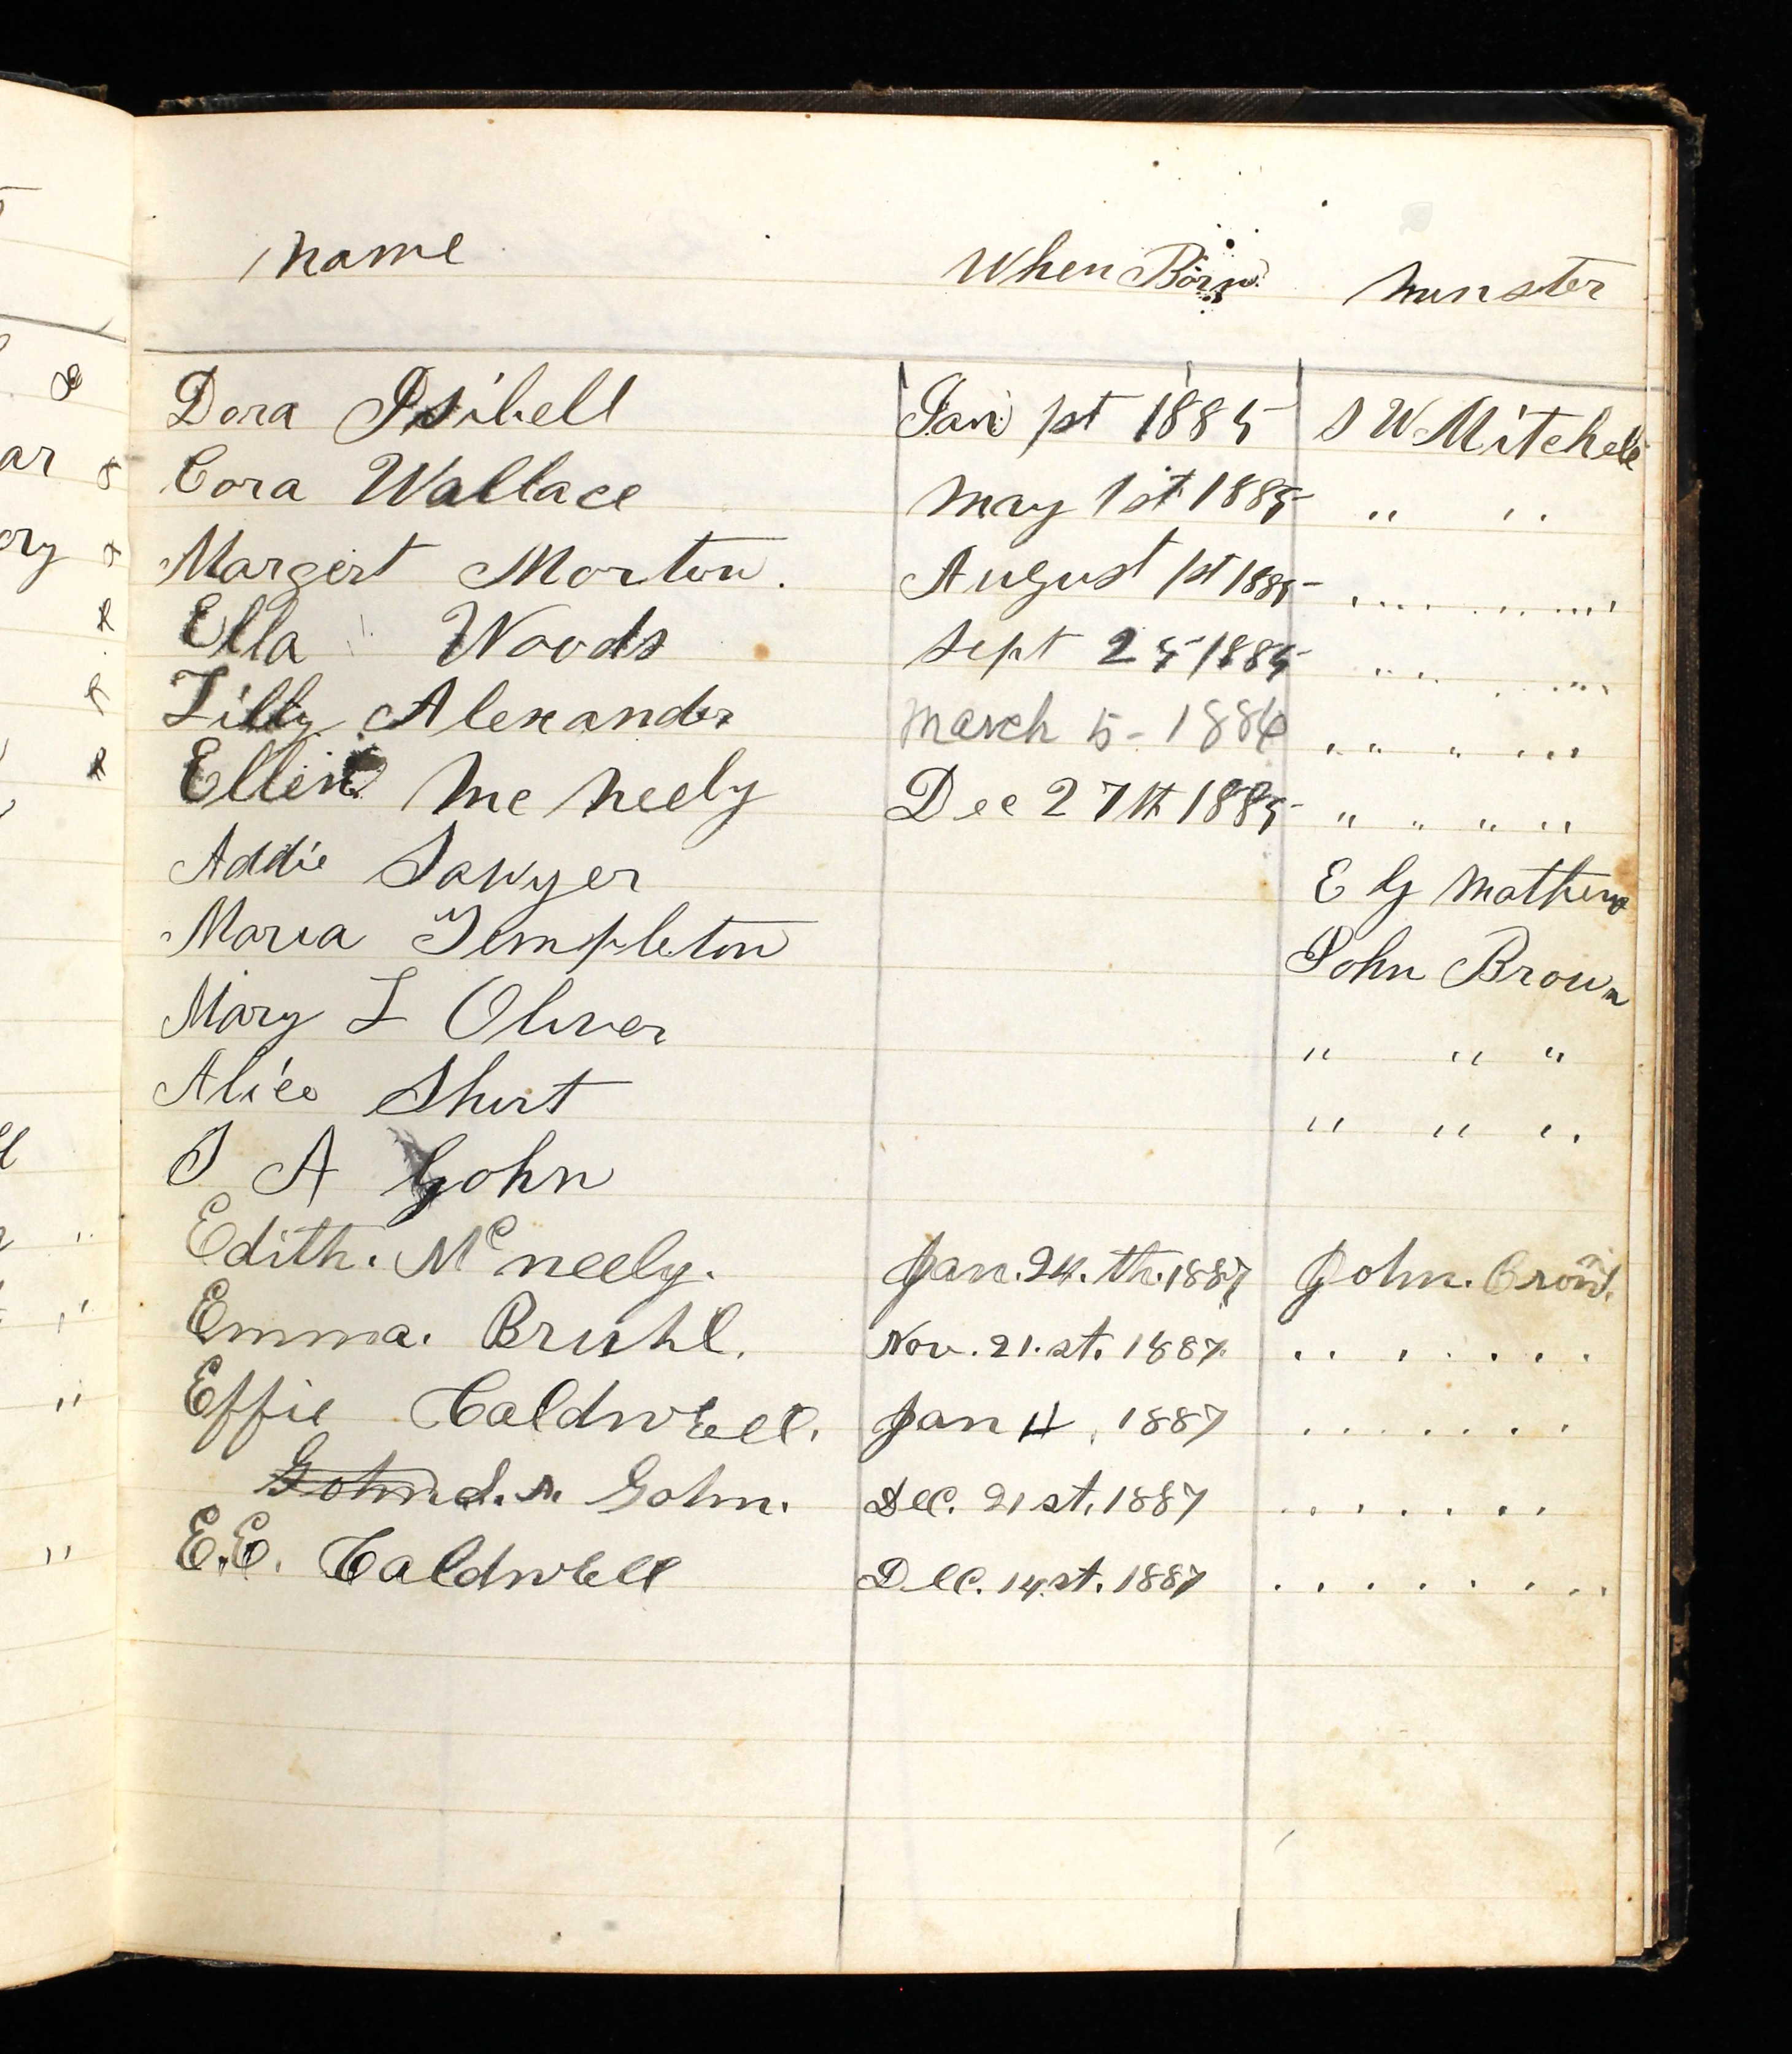 Name When Born Minster
Dora Isibell Jan 1st 1885 S W Mitchell
Cora Wallace May 1st 1885 " "
Margert Morton. August 1st 1885 " "
Ella Woods Sept 25 1885 " "
Lilly Alexander March 5 - 1886 " " " "
Ellie Mc Neely Dec 27th 1885 " " " "
Addie Sawyer E G Mathews
Maria Templeton John Brown
Mary L Oliver " " "
Alice Shurt " " "
S A Gohn
Edith. Mc neely. Jan. 24. th. 1887 John. Brown.
Emma. Bruhl. Nov. 21. st. 1887. " "
Effie Caldwell. Jan 11, 1887 " "
Gohn d. s. Gohn. Dec. 21 st. 1887 " "
E.E. Caldwell Dec. 14. st. 1887 " "